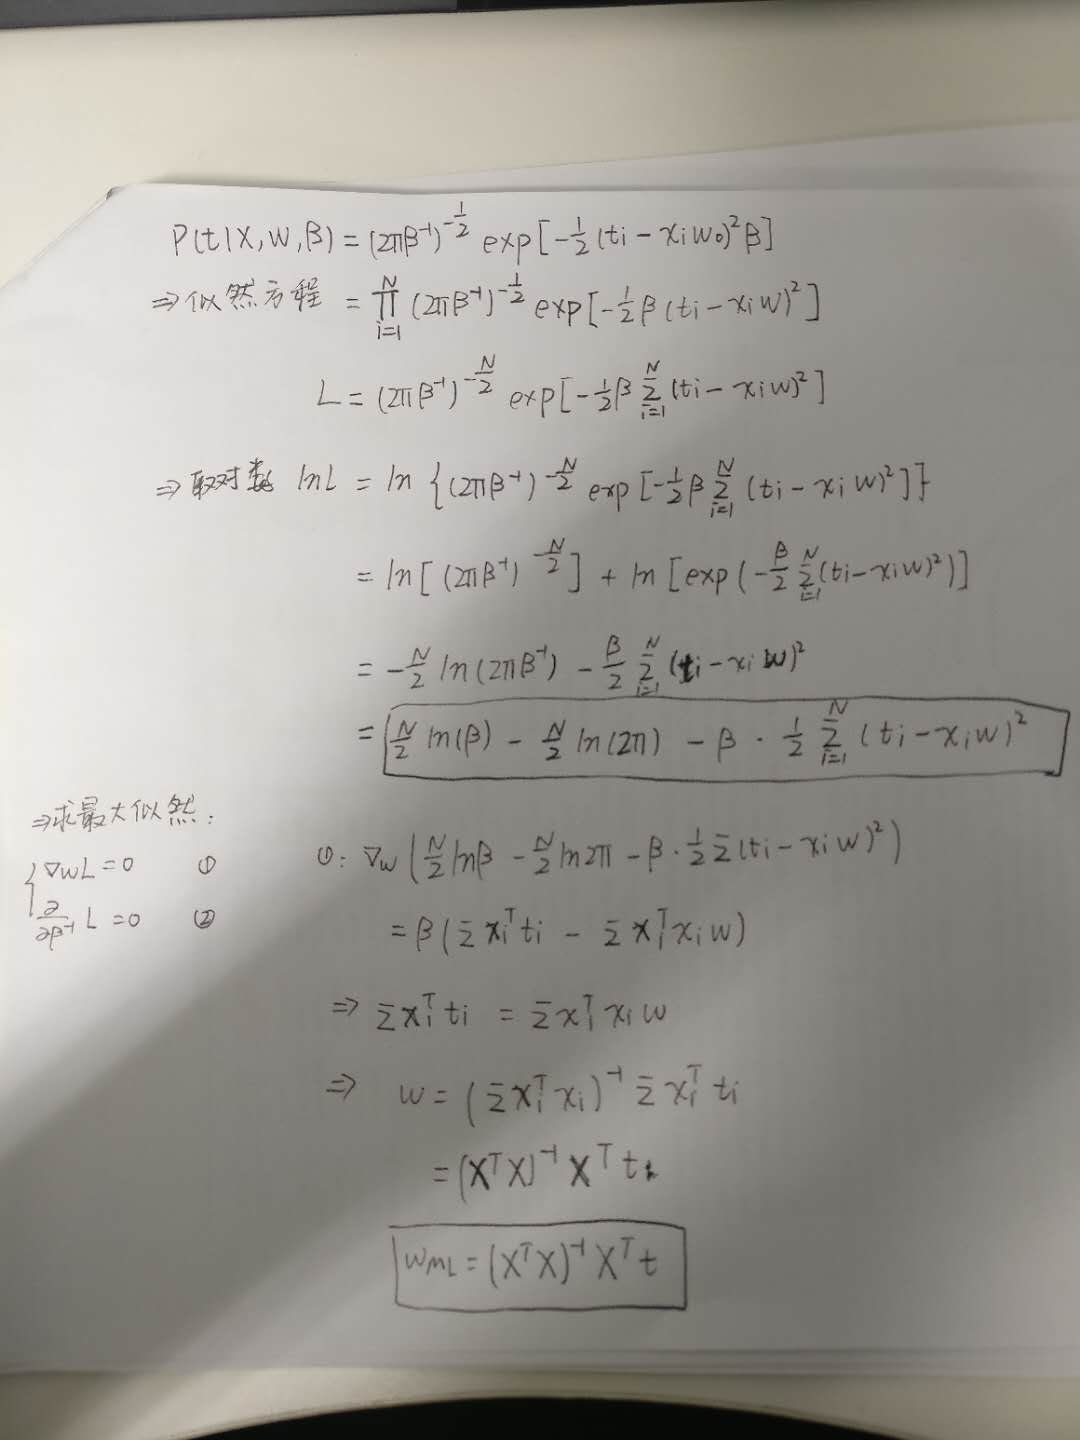 P(t|X,W,β) = (2πβ⁻¹)^(-1/2) exp[-1/2(ti - xiw₀)²β]
⇒ 似然方程 = ∏_{i=1}^{N} (2πβ⁻¹)^(-1/2) exp[-1/2 β (ti - xiw)²]
L = (2πβ⁻¹)^(-N/2) exp[-1/2 β Σ_{i=1}^{N} (ti - xiw)²]
⇒ 取对数 lnL = ln {(2πβ⁻¹)^(-N/2) exp[-1/2 β Σ_{i=1}^{N} (ti - xiw)²]}
= ln[(2πβ⁻¹)^(-N/2)] + ln[exp(-β/2 Σ_{i=1}^{N} (ti - xiw)²)]
= -N/2 ln(2πβ⁻¹) - β/2 Σ_{i=1}^{N} (ti - xiw)²
= N/2 ln(β) - N/2 ln(2π) - β · 1/2 Σ_{i=1}^{N} (ti - xiw)²
⇒ 求最大似然:
{ ∇wL = 0 ①
∂/∂β⁻¹ L = 0 ②
①: ∇w (N/2 lnβ - N/2 ln2π - β · 1/2 Σ(ti - xiw)²)
= β(Σ xiᵀti - Σ xiᵀxiw)
⇒ Σxiᵀti = Σxiᵀxiw
⇒ w = (Σxiᵀxi)⁻¹ Σxiᵀti
= (XᵀX)⁻¹ Xᵀt
wML = (XᵀX)⁻¹Xᵀt